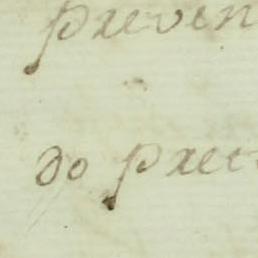 preven
do prec